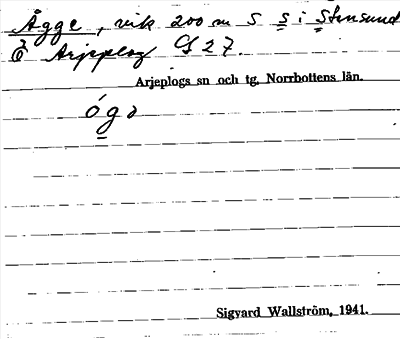 Ågge, vik 200 m S s i Stensund
Ö Arjeplog G 27.
Arjeplogs sn och tg, Norrbottens län.
ógə
Sigvard Wallström, 1941.